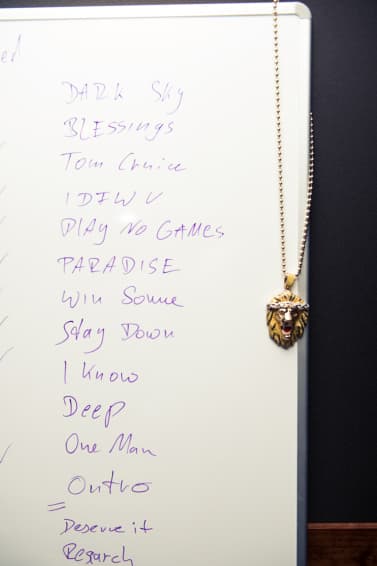 ed
DARK SKy
BLESSINGS
Tom Cruice
I DFWU
PLAY NO GAMES
PARADISE
WIN Some
Stay Down
I Know
Deep
One Man
Outro
=
Deserve it
Regarch